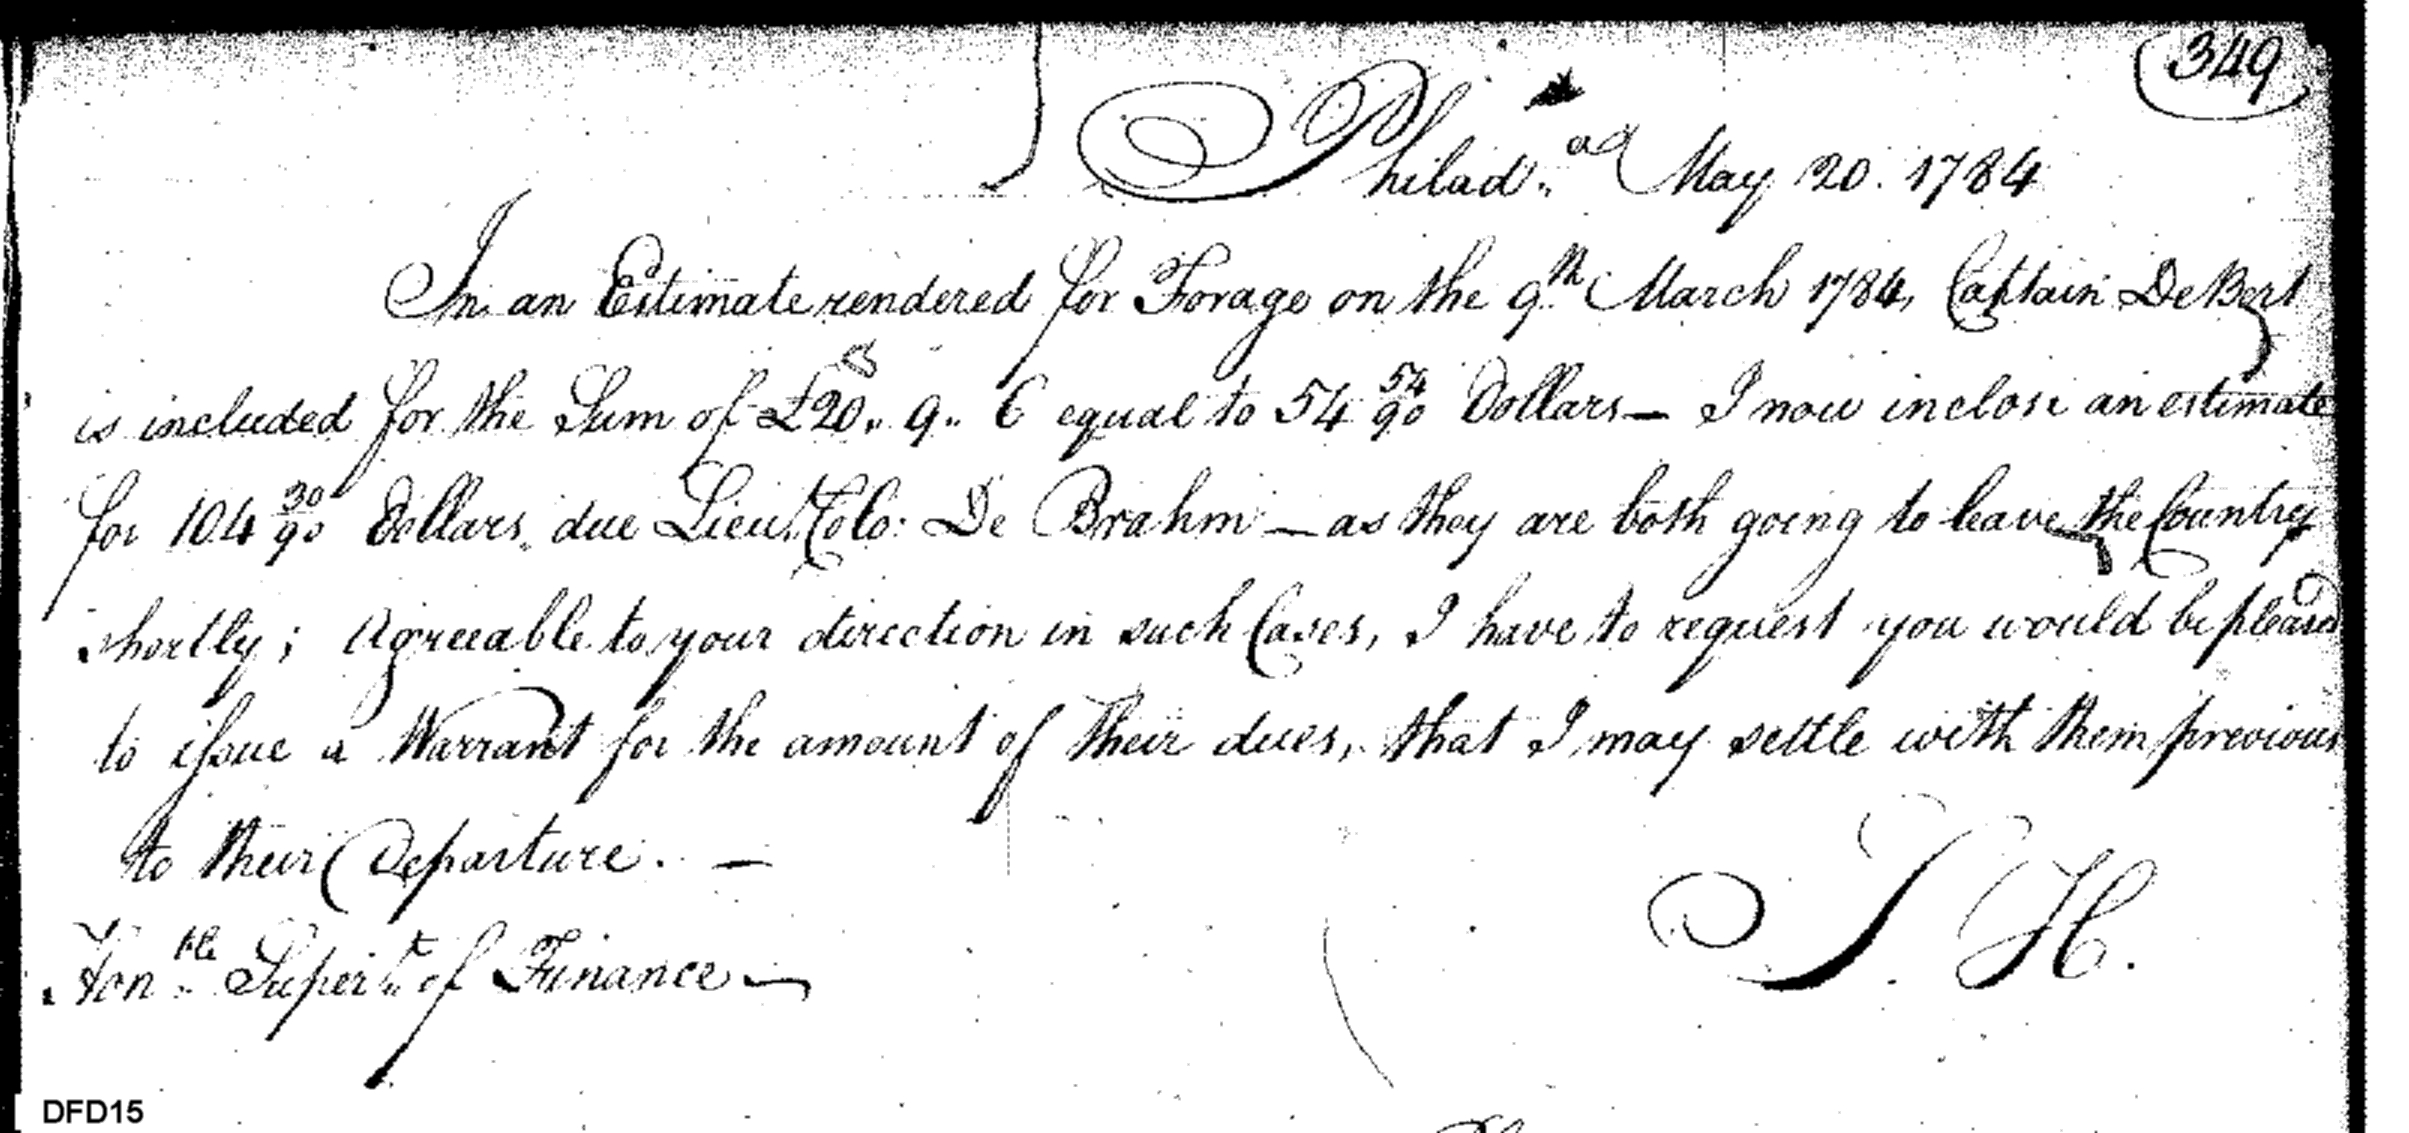 349
Philad.ª May 20. 1784
In an Estimate rendered for Forage on the 9.th March 1784, Captain De Bert
is included for the Sum of £20.. 9.. 6 equal to 54 54/90 Dollars — I now inclose an estimate
for 104 30/90 Dollars due Lieu.t Colo: De Brahm — as they are both going to leave the Country
shortly; Agreeable to your direction in such Cases, I have to request you would be pleased
to issue a Warrant for the amount of their dues, that I may settle with them previous
to their Departure. —
Hon.ble Super.t of Finance —
J. H.
DFD15